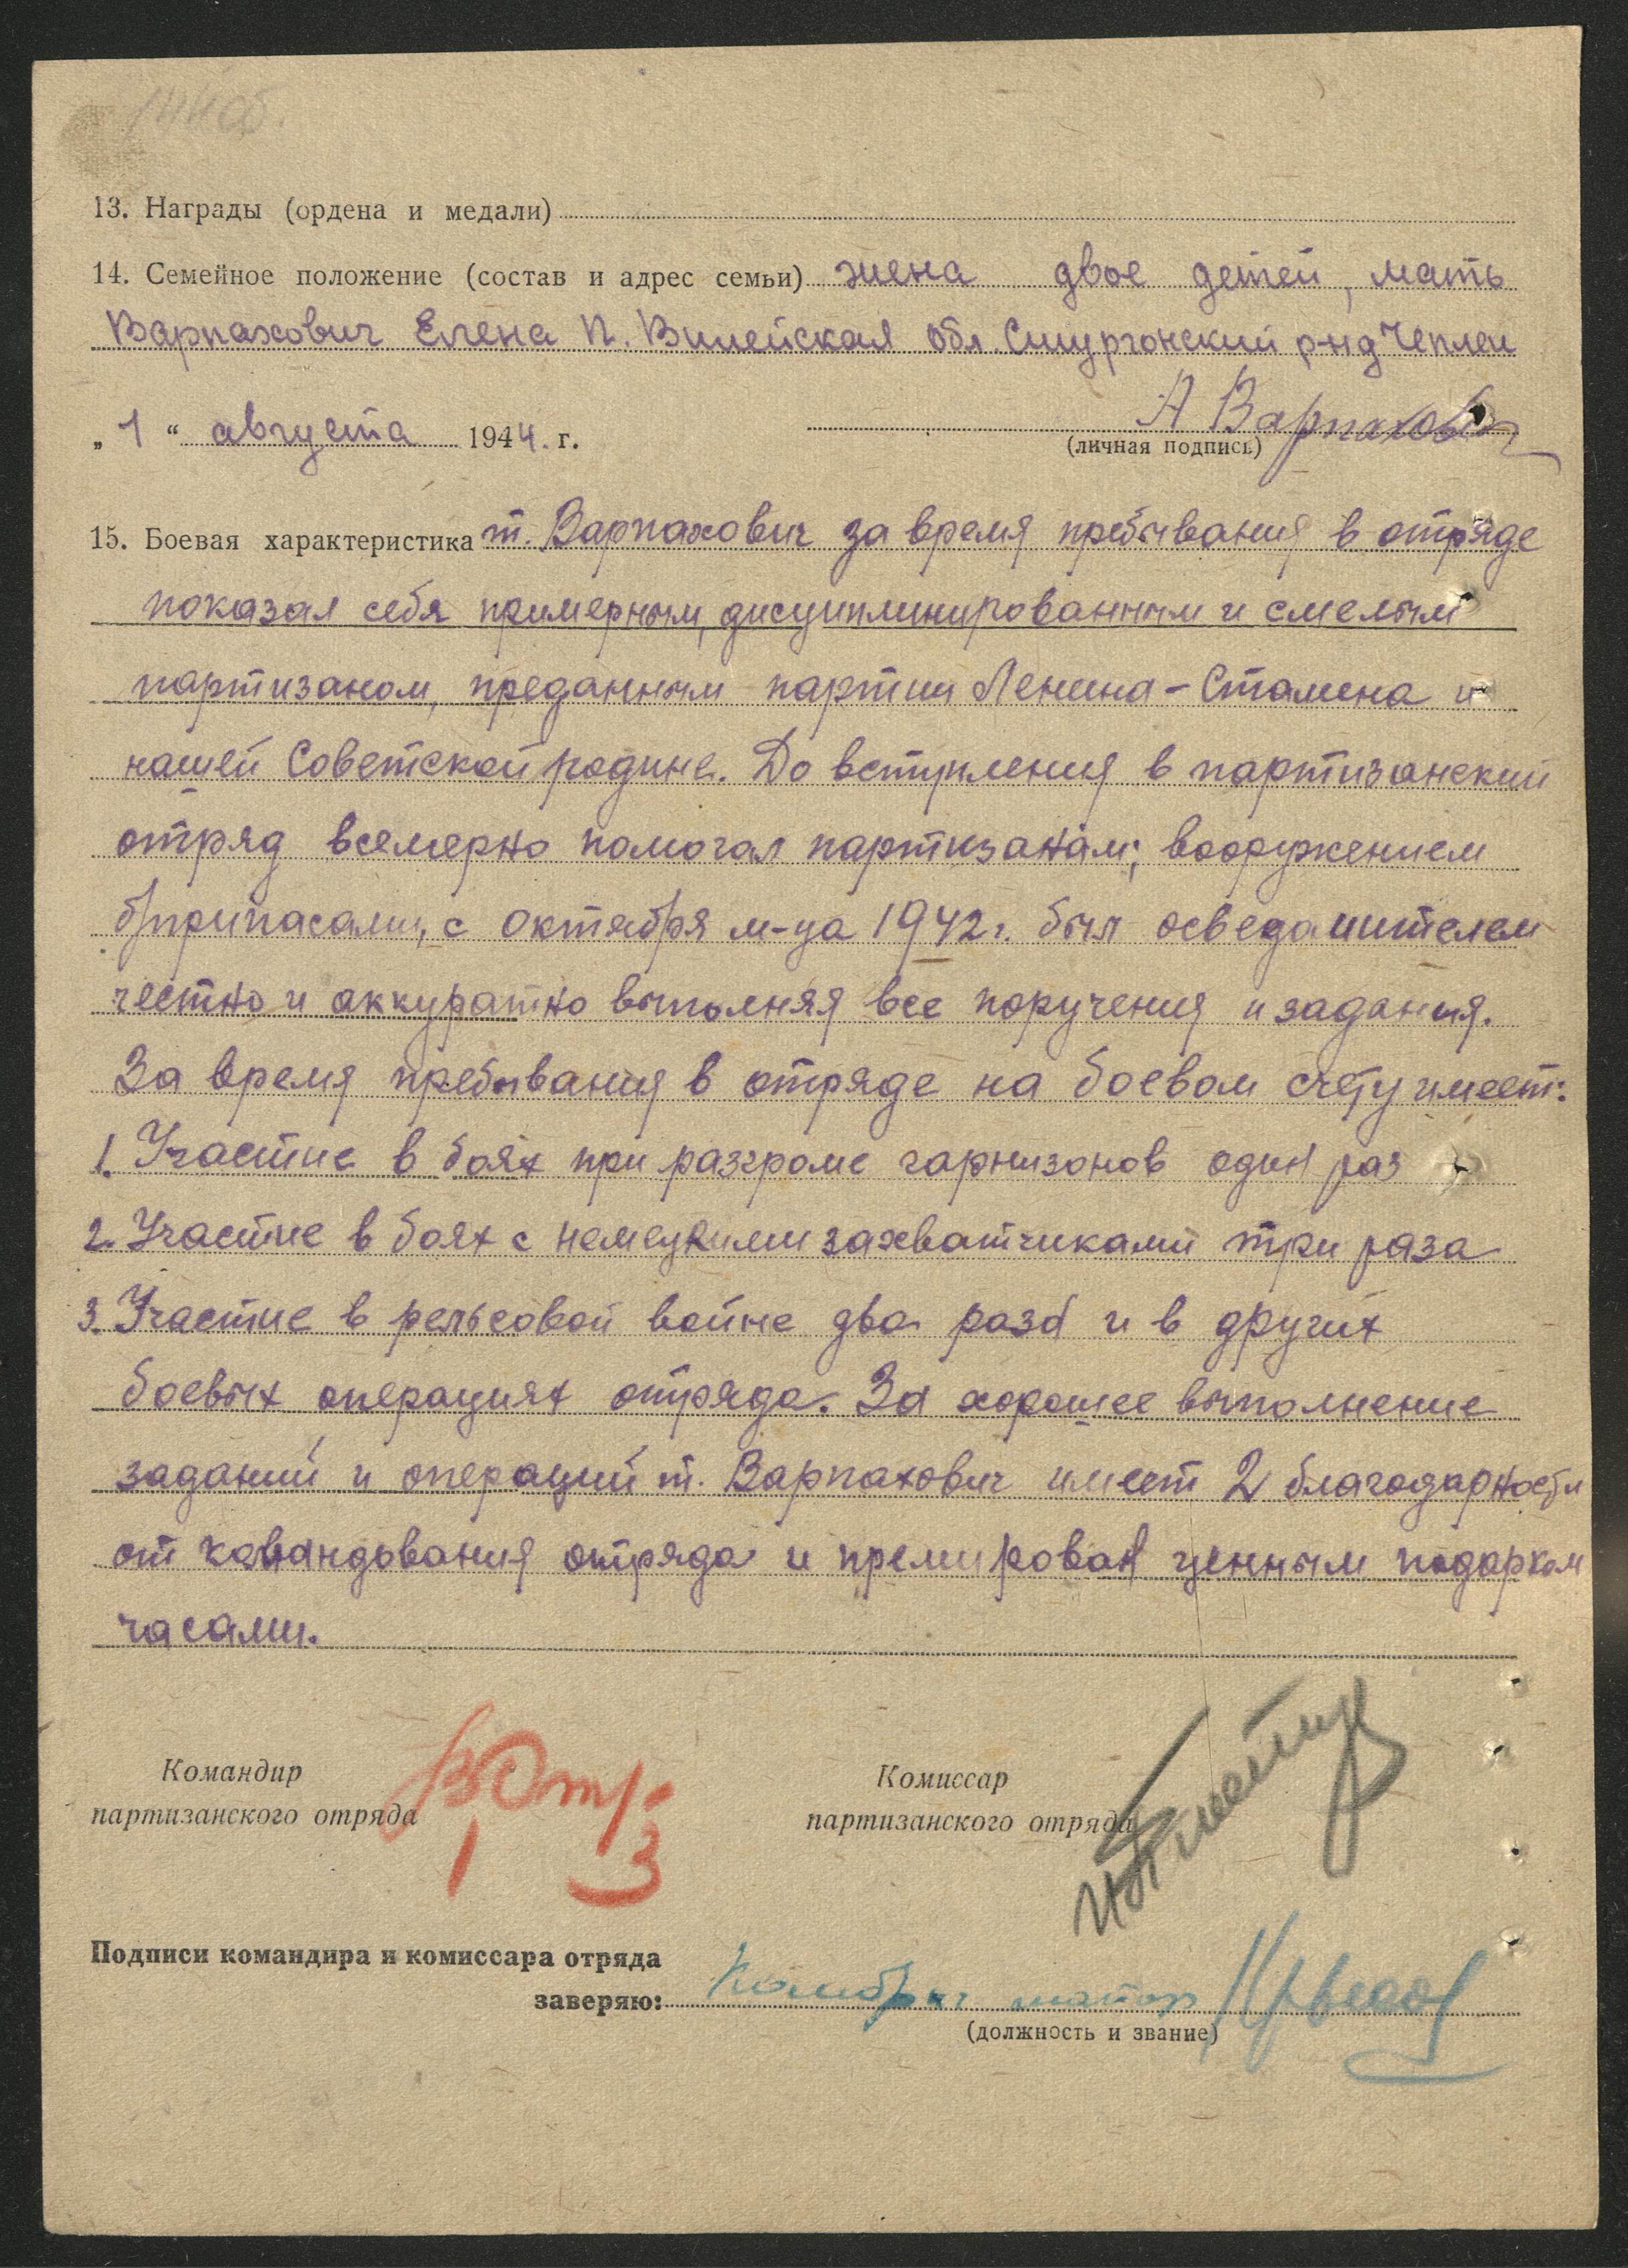 13. Награды (ордена и медали)
14. Семейное положение (состав и адрес семьи) жена двое детей, мать
Варпахович Елена П. Вилейская обл. Смургонский р-н д Чеплеи
„1“ августа 1944. г.
А Варпахович
(личная подпись)
15. Боевая характеристика т. Варпахович за время пребывания в отряде
показал себя примерным, дисциплинированным и смелым
партизаном, преданным партии Ленина-Сталина и
нашей Советской родине. До вступления в партизанский
отряд всемерно помогал партизанам; вооружением
б/припасами, с октября м-ца 1942 г. был осведамителем
честно и аккуратно выполняя все поручения и задания.
За время пребывания в отряде на боевом счету имеет:
1. Участие в боях при разгроме гарнизонов один раз
2. Участие в боях с немецкими захватчиками три раза
3. Участие в рельсовой войне два раза и в других
боевых операциях отряда. За хорошее выполнение
заданий и операций т. Варпахович имеет 2 благодарности
от командования отряда и премирован ценным подарком
часами.
Командир
партизанского отряда
Комиссар
партизанского отряда
Подписи командира и комиссара отряда
заверяю: Комбриг майор
(должность и звание)